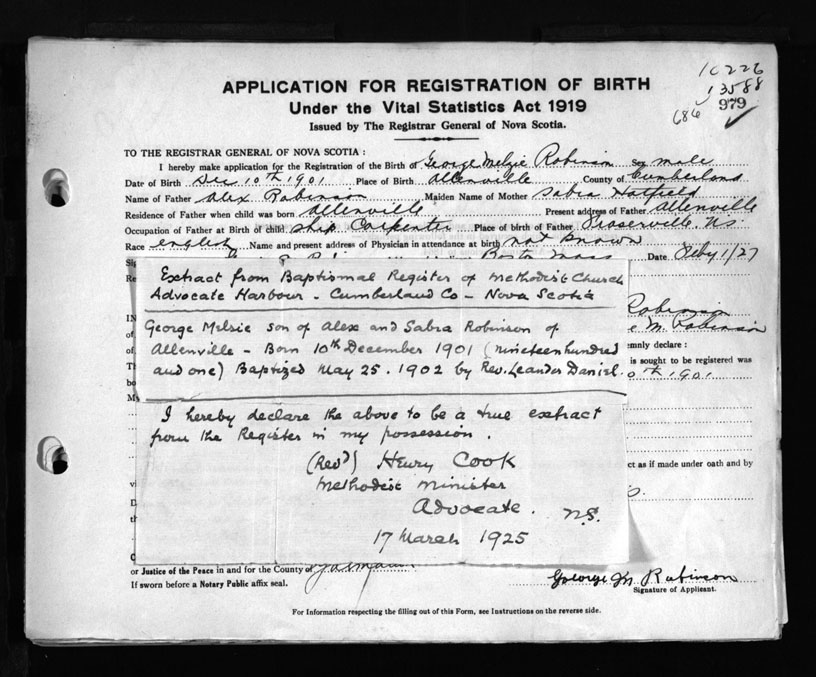 10226
13588
686 979
APPLICATION FOR REGISTRATION OF BIRTH
Under the Vital Statistics Act 1919
Issued by The Registrar General of Nova Scotia.
TO THE REGISTRAR GENERAL OF NOVA SCOTIA :
I hereby make application for the Registration of the Birth of George Melzie Robinson Sex male
Date of Birth Dec 10th 1901 Place of Birth Allenville County of Cumberland
Name of Father Alex Robinson Maiden Name of Mother Sabra Hatfield
Residence of Father when child was born Allenville Present address of Father Allenville
Occupation of Father at Birth of child Ship Carpenter Place of birth of Father NS
Race english Name and present address of Physician in attendance at birth not known
Boston Mass Date Feby 1/27
Extract from Baptismal Register of Methodist Church
Advocate Harbour - Cumberland Co - Nova Scotia
Robinson
George Melsie son of Alex and Sabra Robinson of
M. Robinson
Allenville - Born 10th December 1901 (nineteen hundred
emnly declare :
and one) Baptized May 25. 1902 by Rev. Leander Daniel.
is sought to be registered was
th 1901
I hereby declare the above to be a true extract
from the Register in my possession.
(Revd) Henry Cook
ct as if made under oath and by
Methodist Minister
Advocate. N.S.
17 March 1925
or Justice of the Peace in and for the County of
If sworn before a Notary Public affix seal.
George M. Robinson
Signature of Applicant.
For Information respecting the filling out of this Form, see Instructions on the reverse side.